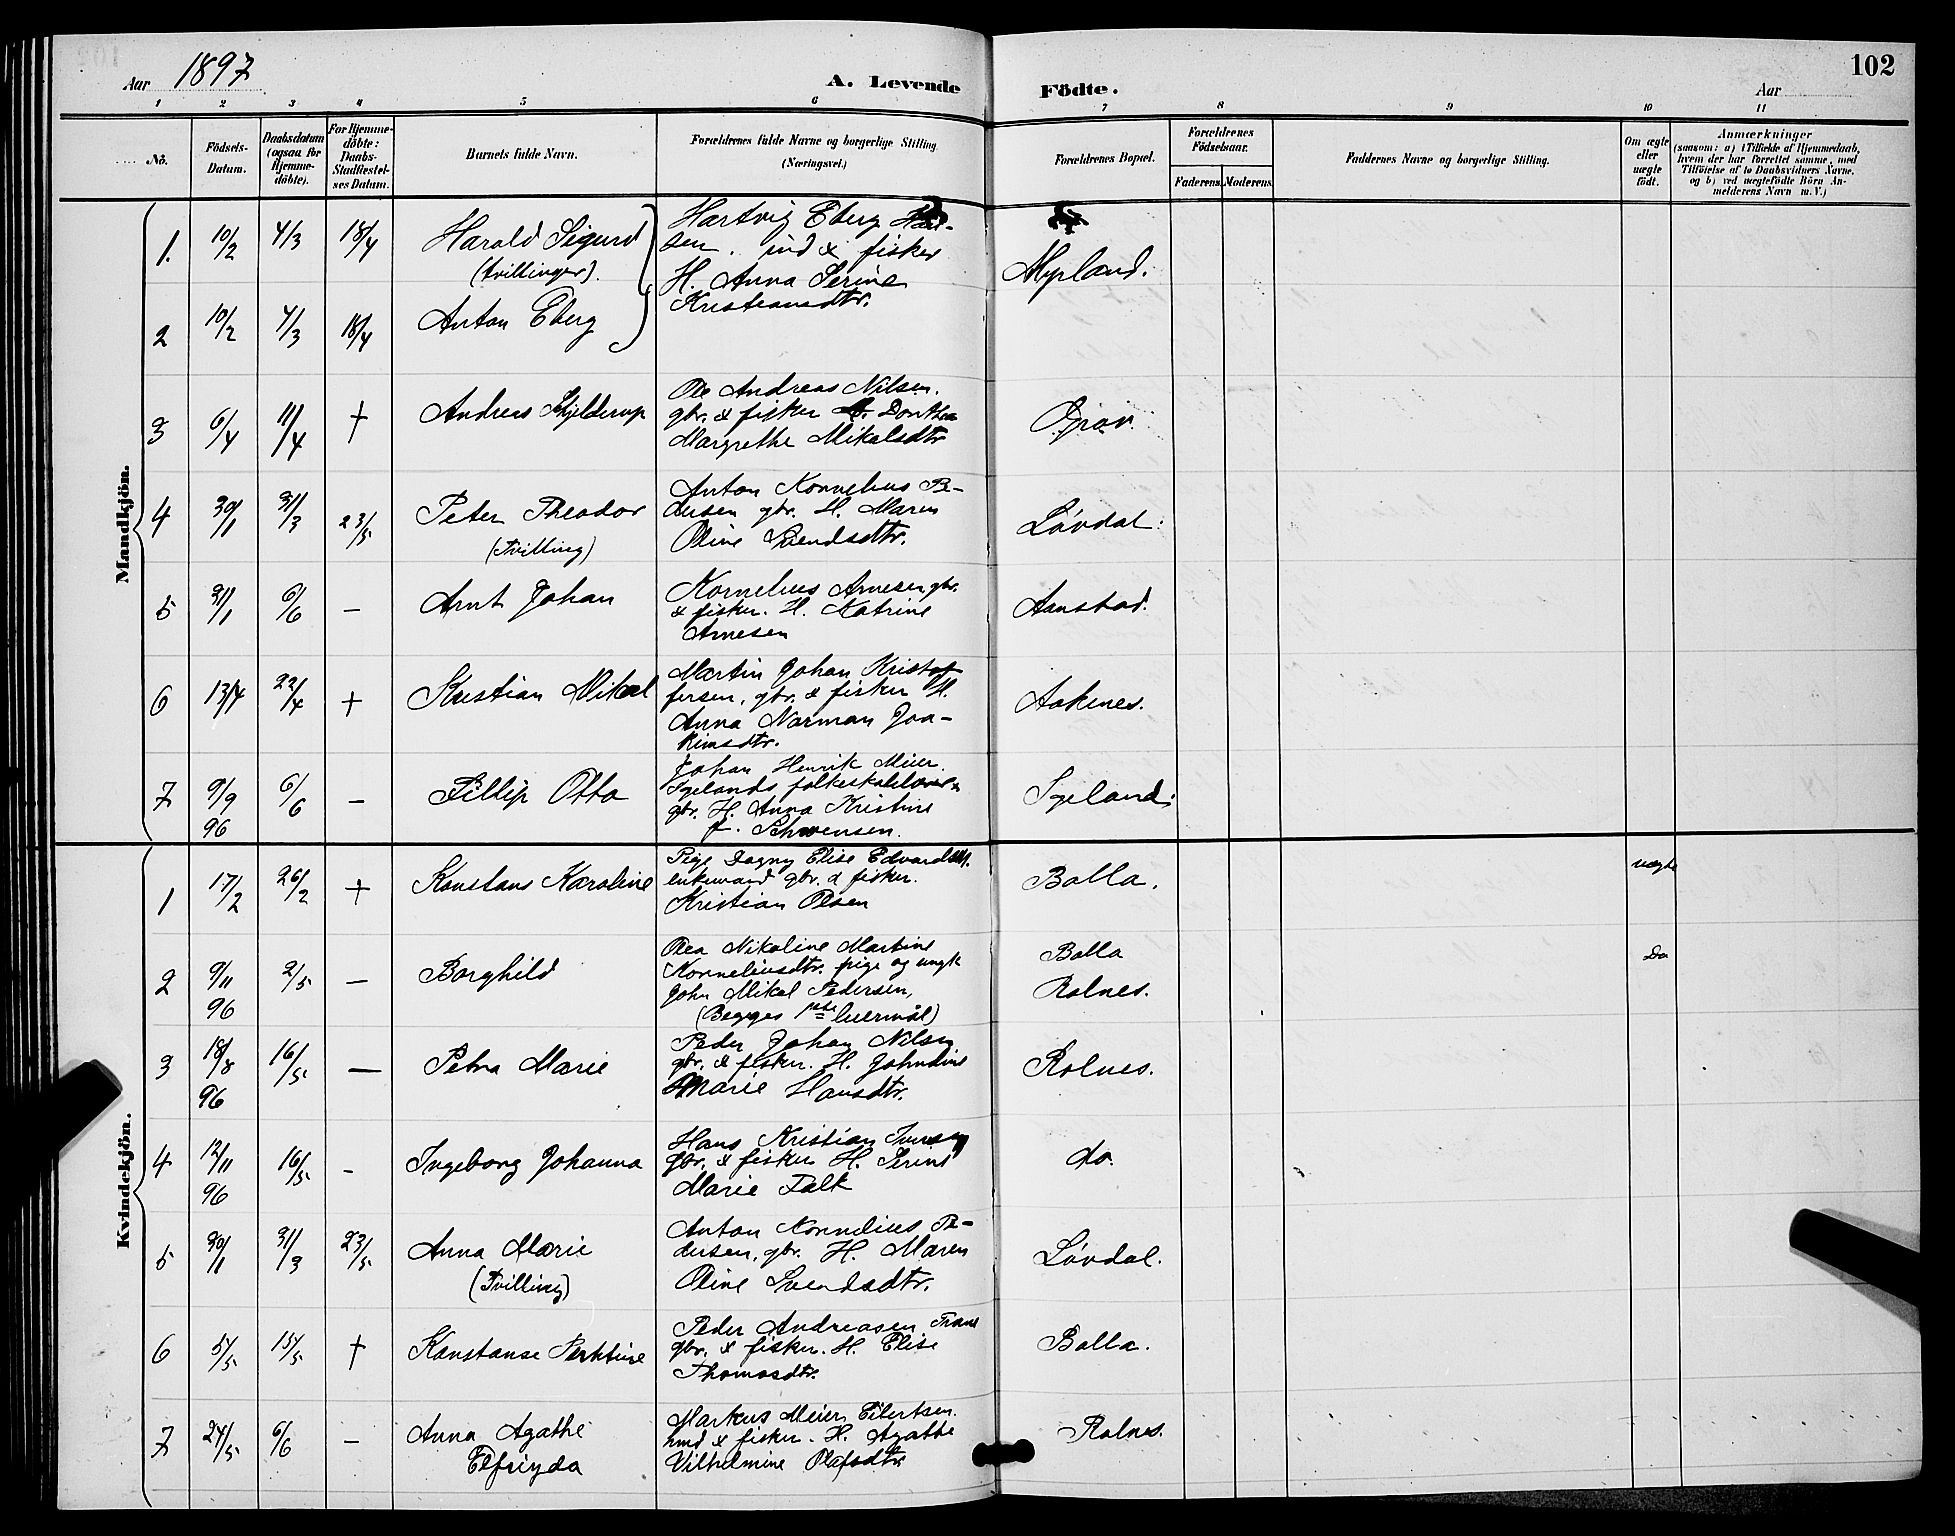 102
Aar 1897
A. Levende Födte.
Aar
1 2 3 4 5 6 7 8 9 10 11
No.
Födsels-Datum.
Daabsdatum (ogsaa for Hjemme-döbte).
For Hjemme-döbte: Daabs-Stadfæstel-ses Datum.
Barnets fulde Navn.
Forældrenes fulde Navne og borgerlige Stilling (Næringsvei.)
Forældrenes Bopæl.
Forældrenes Födselsaar.
Faderens. Moderens.
Faddernes Navne og borgerlige Stilling.
Om ægte eller uægte födt.
Anmærkninger
(saasom: a) i Tilfælde af Hjemmedaab,
hvem der har forrettet samme, med
Tilföielse af to Daabsvidners Navne,
og b) ved uægtefödte Börn An-
melderens Navn m. V.)
Mandkjön.
1. 10/2 4/3 18/4 Harald Sigurd
(tvillinger).
Hartvig Eberg Han-
sen. ind & fisker
H. Anna Serine
Kristiansdtr.
Myrland.
2 10/2 4/3 18/4 Anton Eberg
3 6/4 11/4 + Andreas Skjelderup
Ole Andreas Nilsen.
gbr. & fisker H. Dorthea
Margrethe Mikalsdtr
Grav.
4 30/1 31/3 23/5 Peter Theodor
(Tvilling)
Anton Kornelius Pe-
dersen gbr. H. Maren
Oline Svendsdtr.
Løvdal.
5 31/1 6/6 — Arnt Johan
Kornelius Arnesen gbr.
& fisker. H. Katrine
Arnesen
Aanstad.
6 13/4 22/4 + Kristian Mikal
Martin Johan Kristof-
fersen, gbr. & fisker H.
Anna Norman Joa-
kimsdtr.
Aaknes.
7 9/9 96 6/6 — Fillip Otto
Johan Henrik Meier
Igelands folkeskolelærer &
gbr. H. Anna Kristine
f. Schwensen.
Igeland.
Kvindekjön.
1 17/2 26/2 + Konstans Karoline
Pige Dagny Elise Edvardsdtr.
enkemand gbr. & fisker.
Kristian Olsen
Bolla.
uægte
2 9/11 96 2/5 — Borghild
Olea Nikoline Martine
Korneliusdtr. pige og ungk
John Mikal Pedersen,
(Begges 1ste leiermål)
Bolla
Rolnes.
Do
3 18/8 96 16/5 — Petra Marie
Peder Johan Nilsen
gbr. & fisker. H. Johndine
Marie Hansdtr.
Rolnes.
4 12/11 96 16/5 - Ingeborg Johanna
Hans Kristian Iversen
gbr. & fisker H. Serine
Marie Falk
do.
5 30/1 31/3 23/5 Anna Marie
(Tvilling)
Anton Kornelius Pe-
dersen, gbr. H. Maren
Oline Svendsdtr.
Løvdal.
6 5/5 15/5 + Konstanse Perktine
Peder Andreasen Trane
gbr. & fisker. H. Elise
Thomasdtr.
Bolla.
7 24/5 6/6 — Anna Agathe
Elfriyda
Markus Meier Eilertsen.
ind & fisker. H. Agathe
Vilhelmine Olafsdtr
Rolnes.